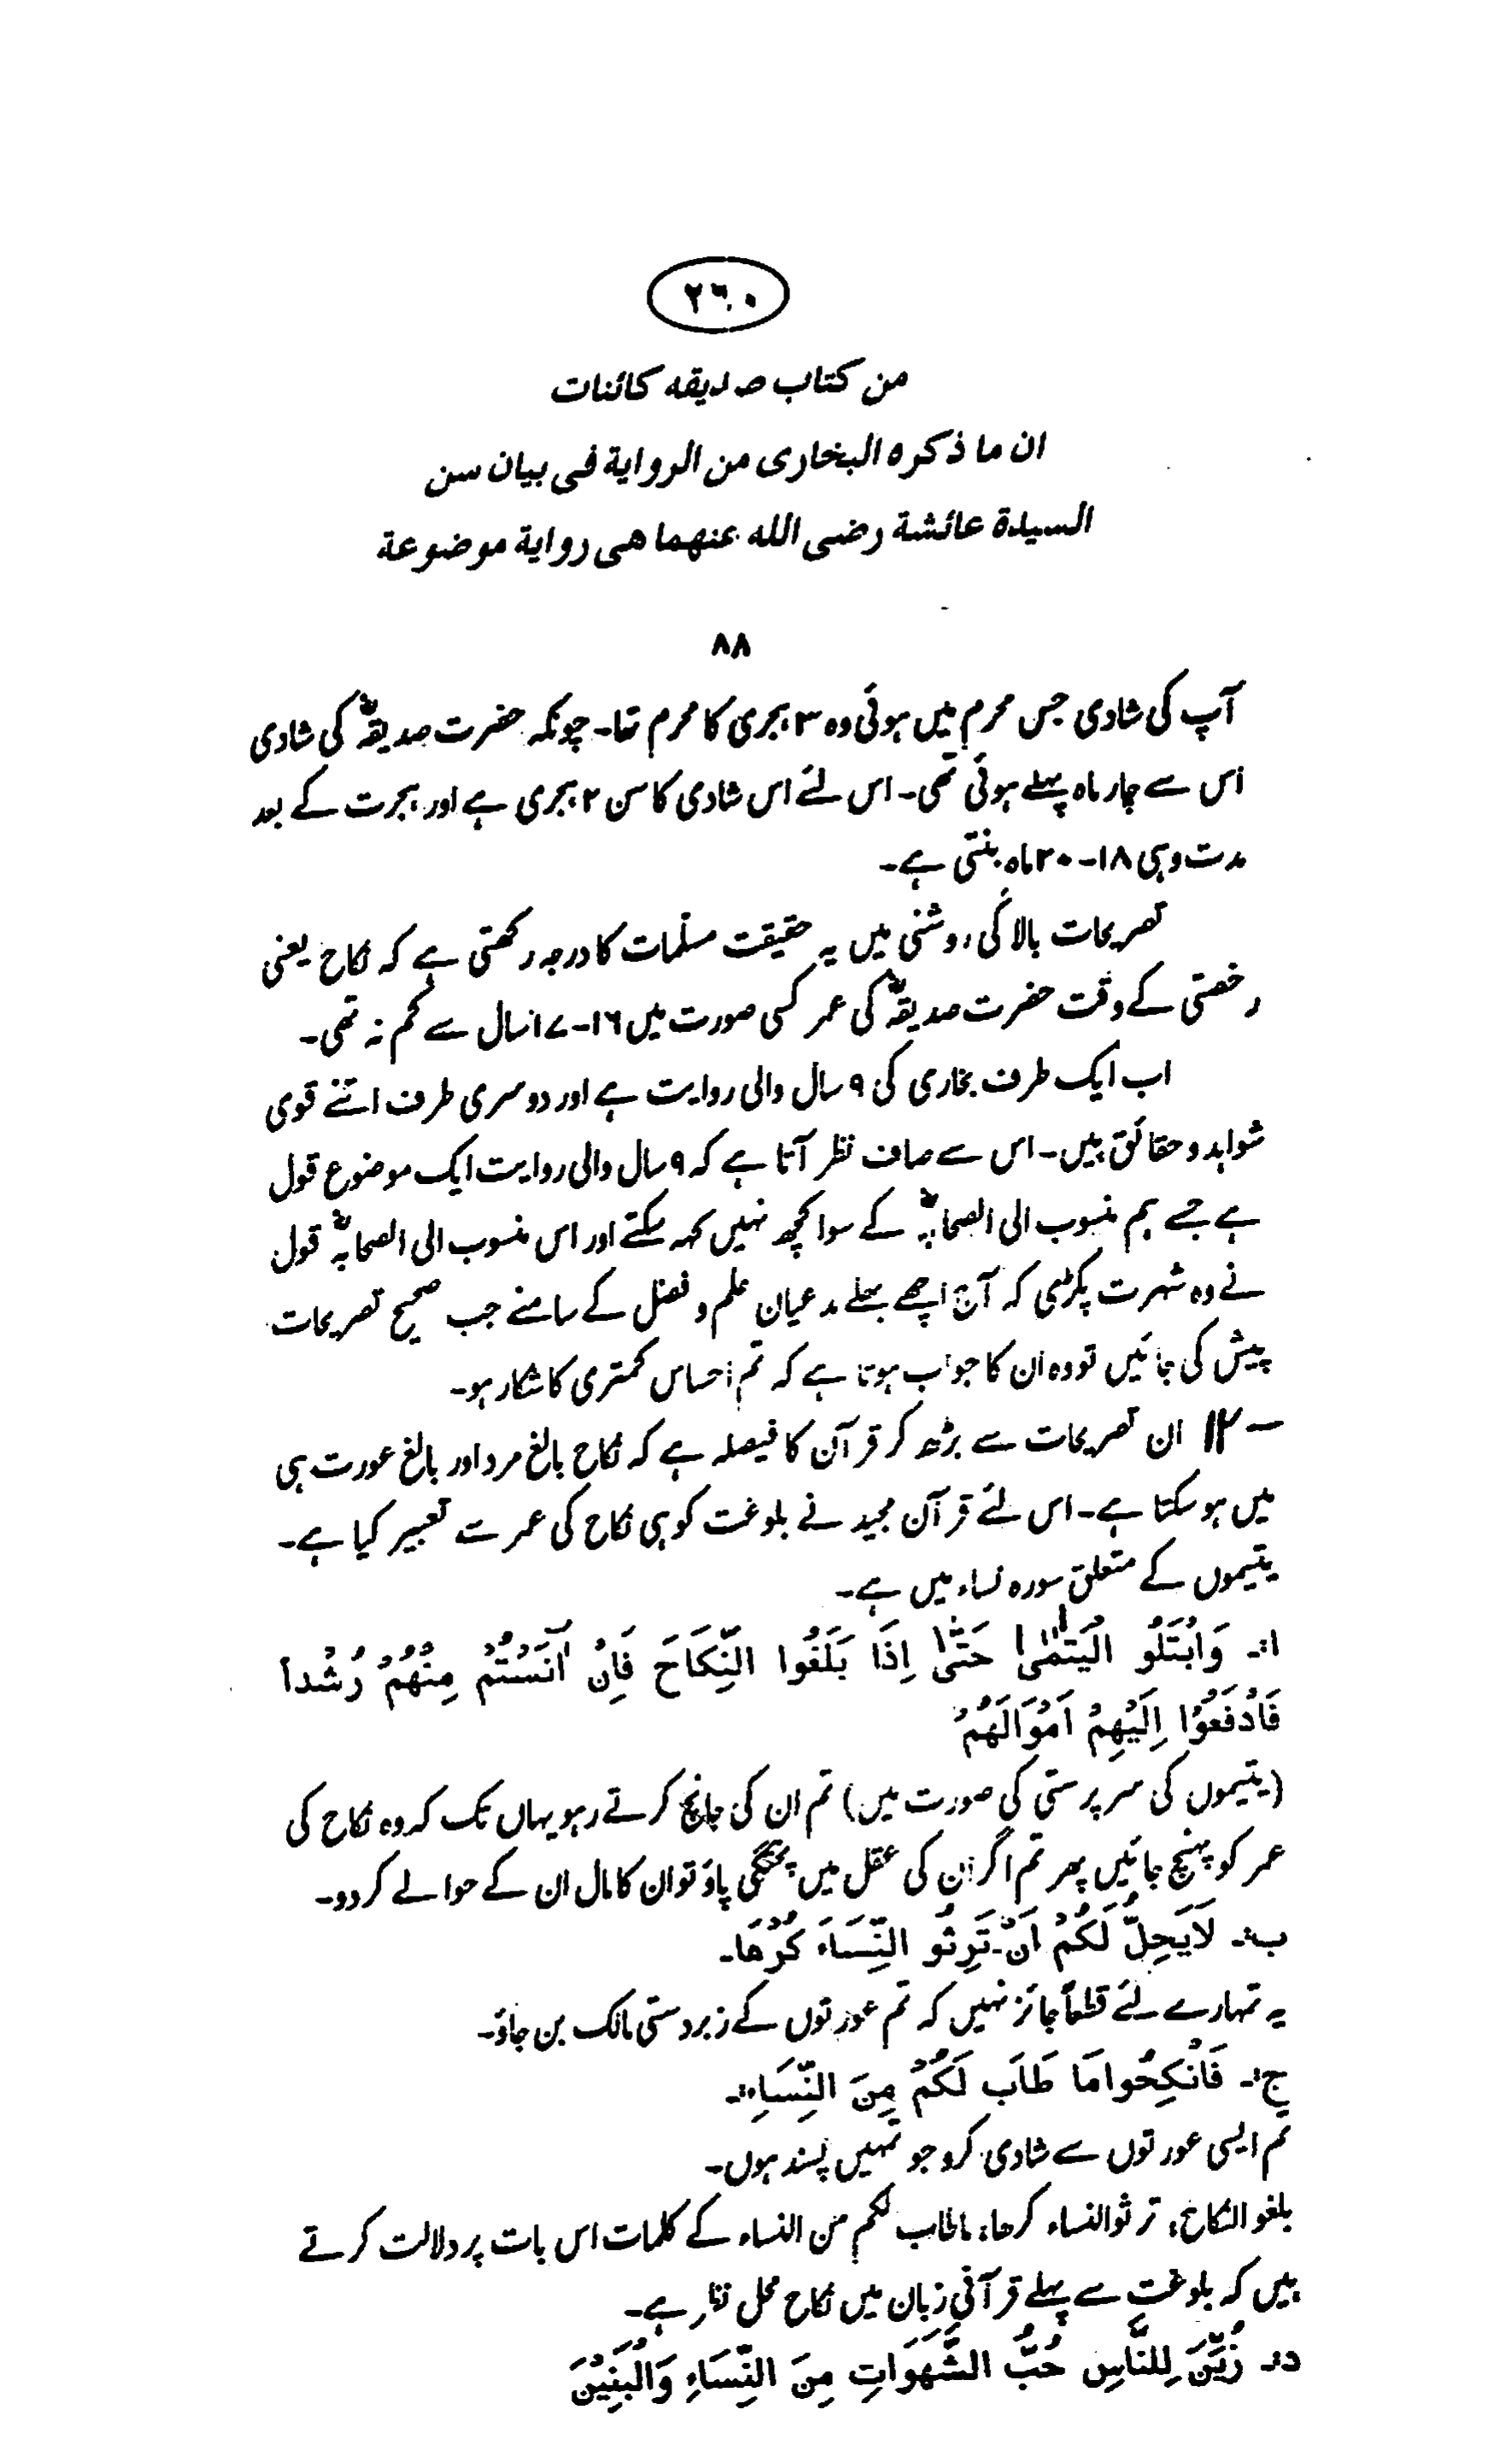 ٢٦٠
من كتاب صديقه كائنات
ان ما ذكره البخارى من الرواية فى بيان سن
السيدة عائشة رضى الله عنهما هى رواية موضوعة
٨٨
آپ کی شادی جس محرم میں ہوئی وہ ۳ ہجری کا محرم تھا۔ چونکہ حضرت صدیقہؓ کی شادی
اس سے چار ماہ پہلے ہوئی تھی۔ اس لئے اس شادی کا سن ۲ ہجری ہے اور ہجرت کے بعد
مدت وہی ۱۸-۲۰ ماہ بنتی ہے۔
تصریحات بالا کی روشنی میں یہ حقیقت مسلمات کا درجہ رکھتی ہے کہ نکاح یعنی
رخصتی کے وقت حضرت صدیقہؓ کی عمر کسی صورت میں ۱۶-۱۷ سال سے کم نہ تھی۔
اب ایک طرف بخاری کی ۹ سال والی روایت ہے اور دوسری طرف اتنے قوی
شواہد و حقائق ہیں۔ اس سے صاف نظر آتا ہے کہ ۹ سال والی روایت ایک موضوع قول
ہے جسے ہم منسوب الی الصحابہؓ کے سوا کچھ نہیں کہہ سکتے اور اس منسوب الی الصحابہؓ قول
نے وہ شہرت پکڑی کہ آج اچھے بھلے مدعیان علم و فضل کے سامنے جب صحیح تصریحات
پیش کی جائیں تو وہ ان کا جواب ہوتا ہے کہ تم احساس کمتری کا شکار ہو۔
۱۲- ان تصریحات سے بڑھ کر قرآن کا فیصلہ ہے کہ نکاح بالغ مرد اور بالغ عورت ہی
میں ہو سکتا ہے۔ اس لئے قرآن مجید نے بلوغت کو ہی نکاح کی عمر سے تعبیر کیا ہے۔
یتیموں کے متعلق سورہ نساء میں ہے۔
ا:۔ وَابْتَلُو الْيَتٰمٰى حَتّٰى اِذَا بَلَغُوا النِّكَاحَ فَاِنْ آنَسْتُمْ مِنْهُمْ رُشْداً
فَادْفَعُوْا اِلَيْهِمْ اَمْوَالَهُمْ
(یتیموں کی سرپرستی کی صورت میں) تم ان کی جانچ کرتے رہو یہاں تک کہ وہ نکاح کی
عمر کو پہنچ جائیں پھر تم اگر ان کی عقل میں پختگی پاؤ تو ان کا مال ان کے حوالے کر دو۔
ب:۔ لَايَحِلُّ لَكُمْ اَنْ تَرِثُو النِّسَاءَ كُرْهَا۔
یہ تمہارے لئے قطعاً جائز نہیں کہ تم عورتوں کے زبردستی مالک بن جاؤ۔
ج:۔ فَانْكِحُوا مَا طَابَ لَكُمْ مِنَ النِّسَاءِ:۔
تم ایسی عورتوں سے شادی کرو جو تمہیں پسند ہوں۔
بلغو النکاح، ترثو النساء کرھا، ماطاب لکم من النساء کے کلمات اس بات پر دلالت کرتے
ہیں کہ بلوغت سے پہلے قرآنی زبان میں نکاح محل نظر ہے۔
د:۔ زُيِّنَ لِلنَّاسِ حُبُّ الشَّهَوَاتِ مِنَ النِّسَاءِ وَالْبَنِيْنَ